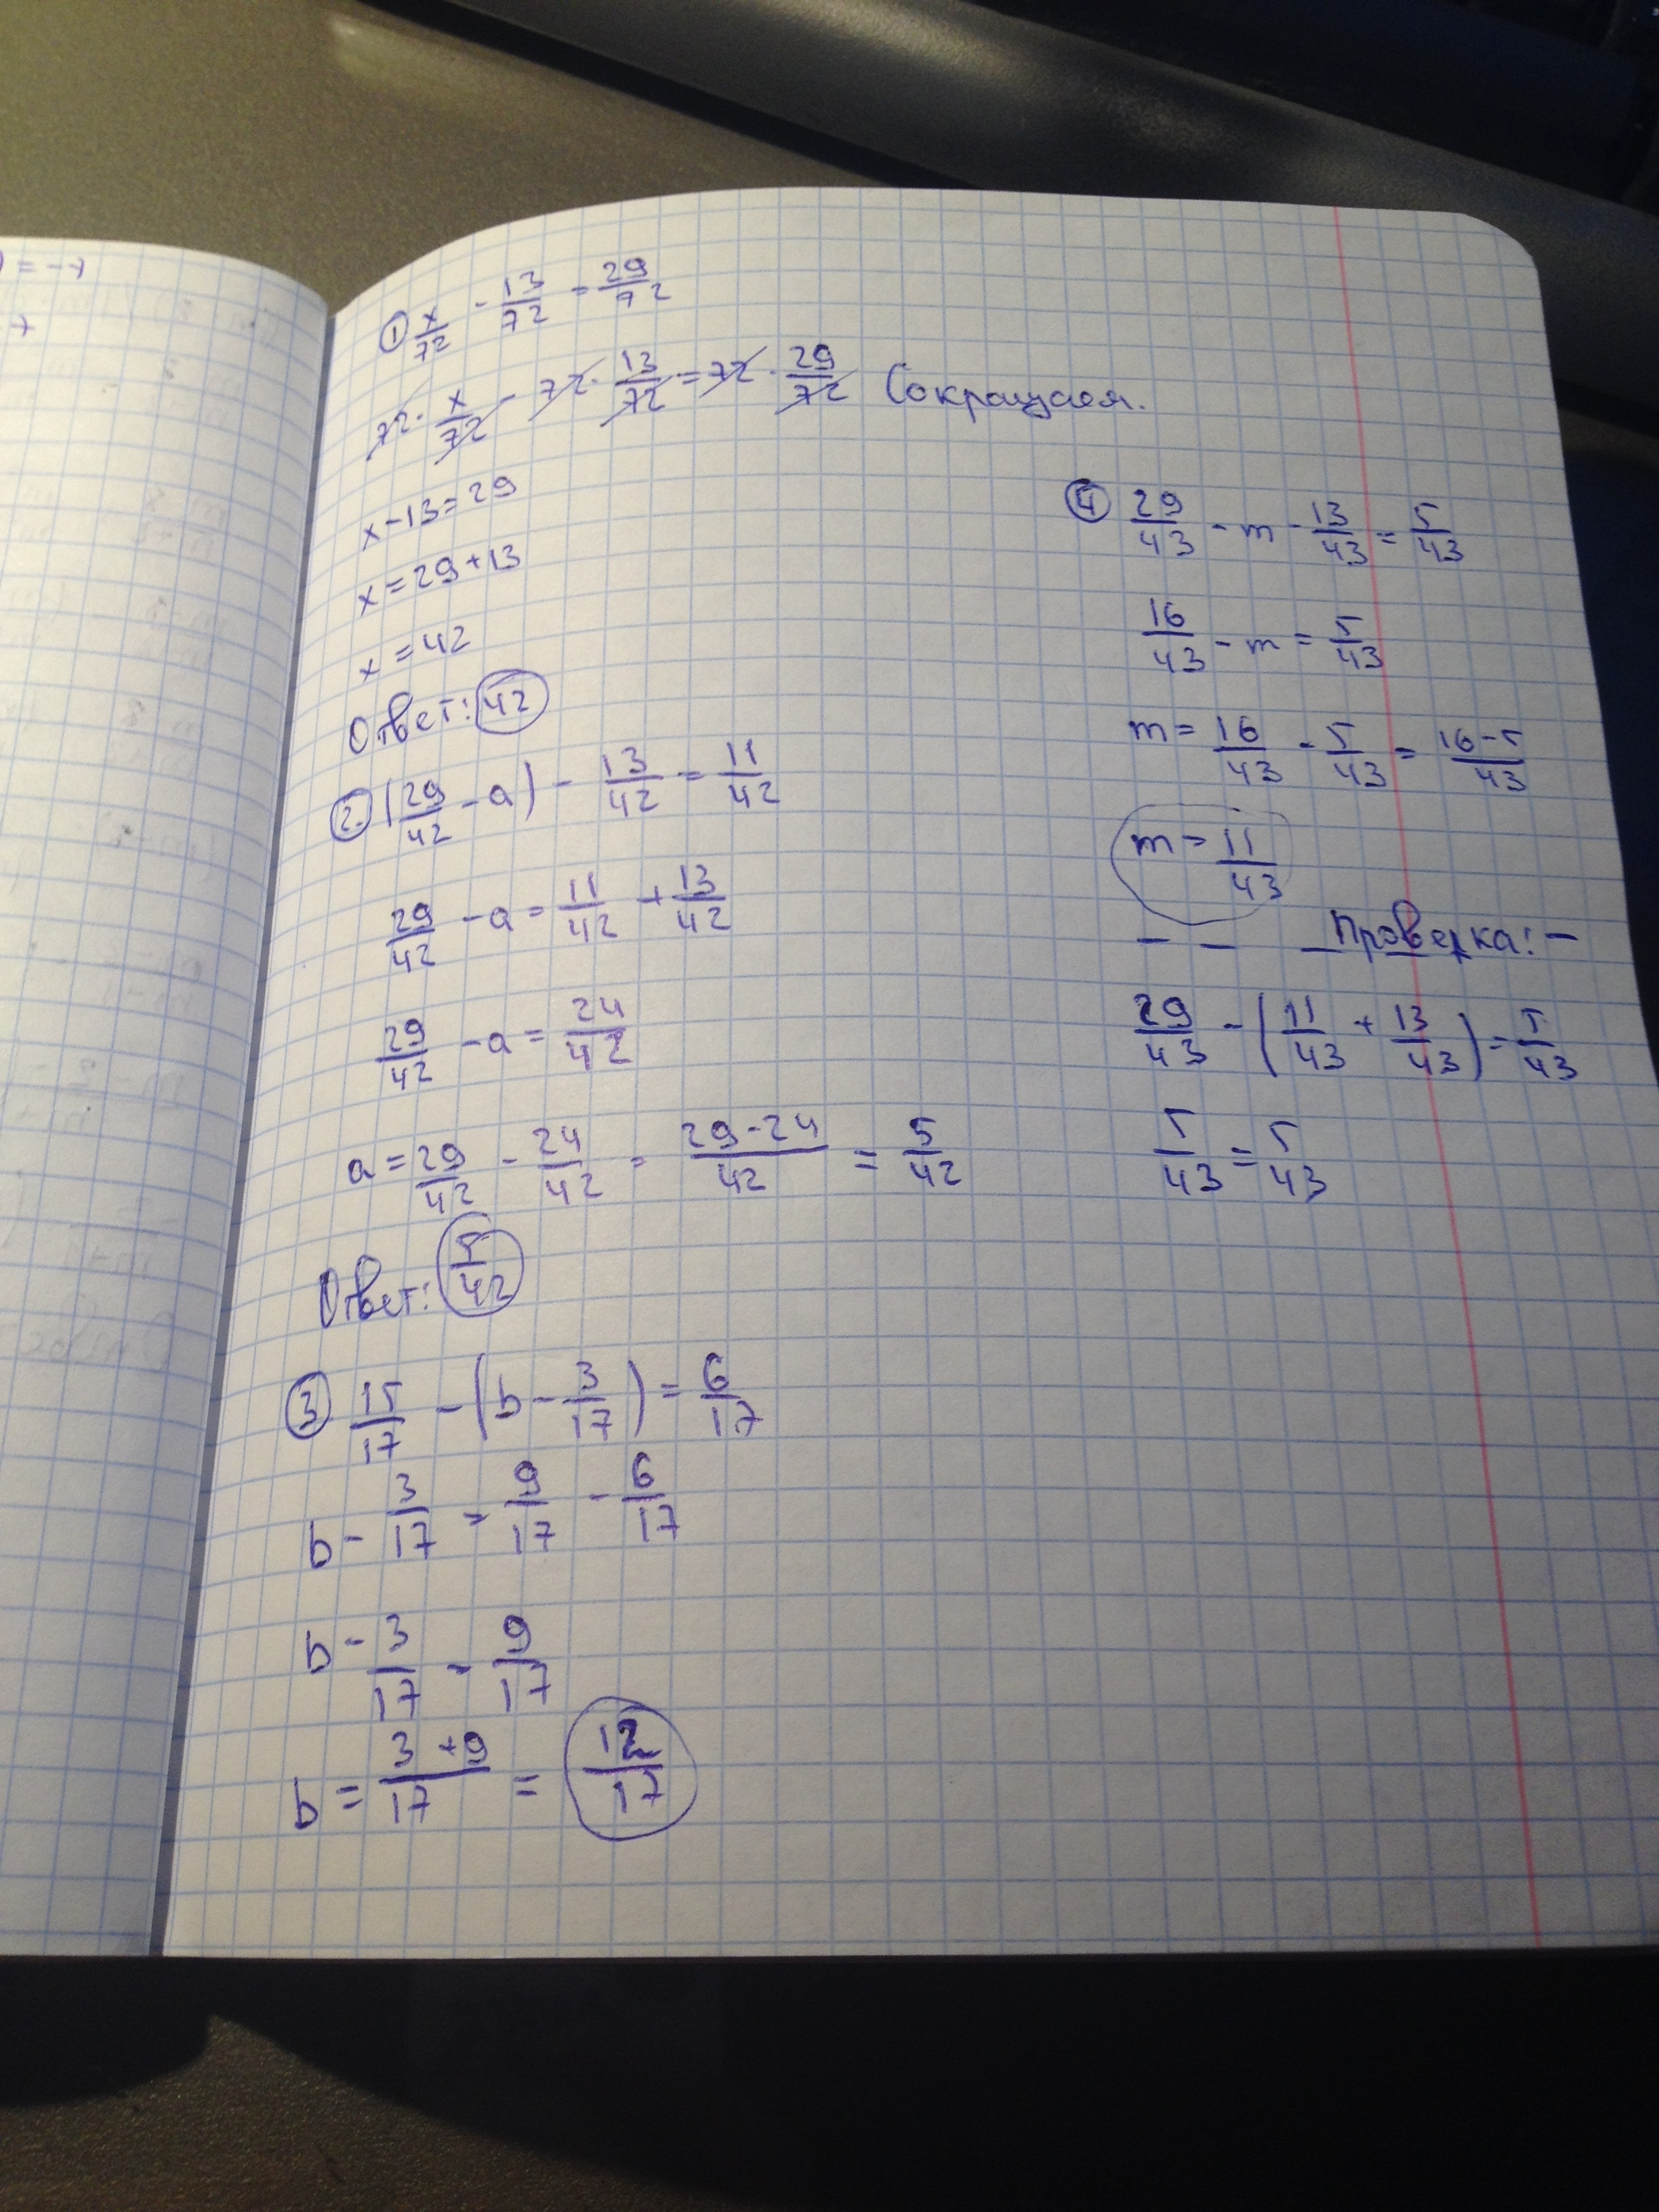 ① x/72 - 13/72 = 29/72
72 · x/72 - 72 · 13/72 = 72 · 29/72 Сокращаем.
x - 13 = 29
x = 29 + 13
x = 42
Ответ: 42
2. (29/42 - a) - 13/42 = 11/42
29/42 - a = 11/42 + 13/42
29/42 - a = 24/42
a = 29/42 - 24/42 = 29-24/42 = 5/42
Ответ: 5/42
③ 15/17 - (b - 3/17) = 6/17
b - 3/17 = 9/17 - 6/17
b - 3/17 = 9/17
b = 3+9/17 = 12/17
④ 29/43 - m - 13/43 = 5/43
16/43 - m = 5/43
m = 16/43 - 5/43 = 16-5/43
m = 11/43
Проверка:
29/43 - (11/43 + 13/43) = 5/43
5/43 = 5/43